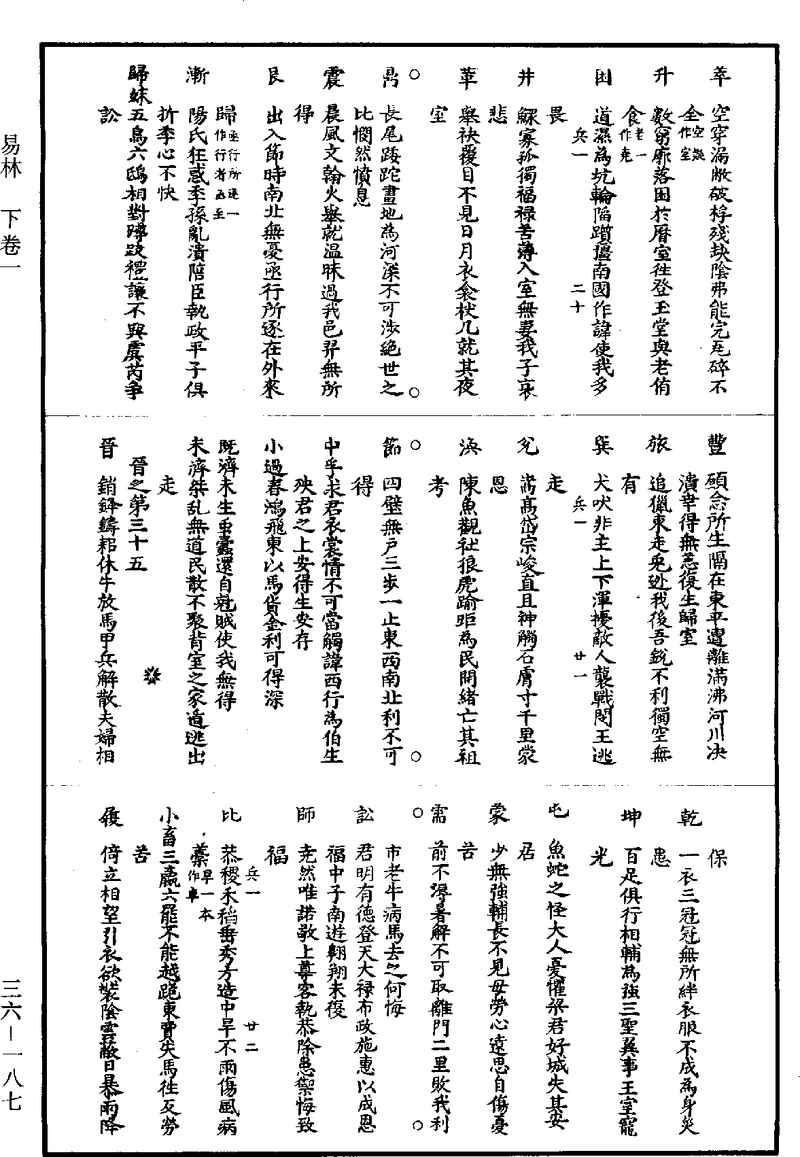 易林　下卷一
三六－一八七
萃　空穿漏敝破桴殘缺陰弗能完瓦碎不
全空災作室
升　數窮廓落困於曆室往登玉堂與老侑
食老一作堯
困　道濕為坑輪陷躓僵南國作諱使我多
畏　兵一　二十
井　鰥寡孤獨福祿苦薄入室無妻我子哀
悲
革　舉袂覆目不見日月衣衾杖几就其夜
室
鼎　長尾踒跎畫地為河深不可涉絕世之
比惘然憤息
震　晨風文翰火舉就溫昧過我邑羿無所
得
艮　出入節時南北無憂亟行所逐在外來
歸亟行所逐一作行者亟至
漸　陽氏狂惑季孫亂潰陪臣執政平子俱
折季心不快
歸妹五鳥六鴟相對蹲跂禮讓不興虞芮爭
訟
豐　碩念所生隔在東平遭離滿沸河川決
潰幸得無恙復生歸室
旅　追獵東走兔逃我後吾銳不利獨空無
有
巽　犬吠非主上下渾擾敵人襲戰閔王逃
走　兵一　廿一
兌　嵩高岱宗峻直且神觸石膚寸千里蒙
恩
渙　陳魚觀社狼虎踰距為民開緒亡其祖
考
節　四壁無戶三步一止東西南北利不可
得
中孚求君衣裳情不可當觸諱西行為伯生
殃君之上安得生安存
小過春鴻飛東以馬貨金利可得深
既濟未生蟲蠹還自剋賊使我無得
未濟桀亂無道民散不聚背室之家逋逃出
走
晉之第三十五
晉　銷鋒鑄耜休牛放馬甲兵解散夫婦相
保
乾　一衣三冠冠無所絆衣服不成為身災
患
坤　百足俱行相輔為強三聖異事王室寵
光
屯　魚蛇之怪大人憂懼梁君好城失其安
居
蒙　少無強輔長不見母勞心遠思自傷憂
苦
需　前不淂暑解不可取離門二里敗我利
市老牛病馬去之何悔
訟　君明有德登天大祿布政施惠以成恩
福中子南遊翱翔未復
師　堯然唯諾敬上尊客執恭除患禦侮致
福　兵一　廿二
比　恭稷禾稻垂秀方造中旱不雨傷風病
藁旱一本作車
小畜三羸六罷不能越跪東賈失馬往反勞
苦
履　倚立相望引衣欲裝陰雲蔽日暴雨降